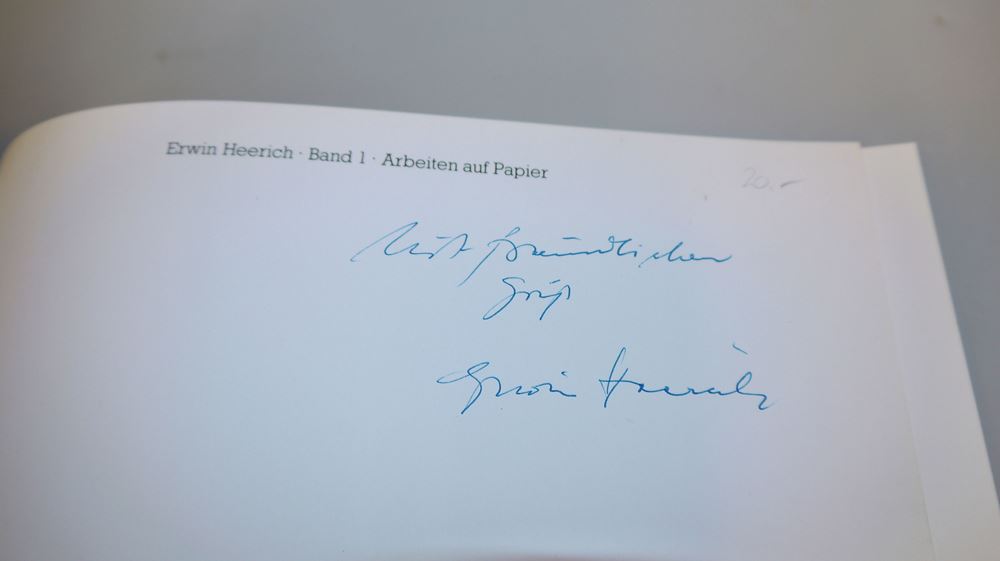 Erwin Heerich · Band 1 · Arbeiten auf Papier
20.-
Mit freundlichem
Gruß
Erwin Heerich